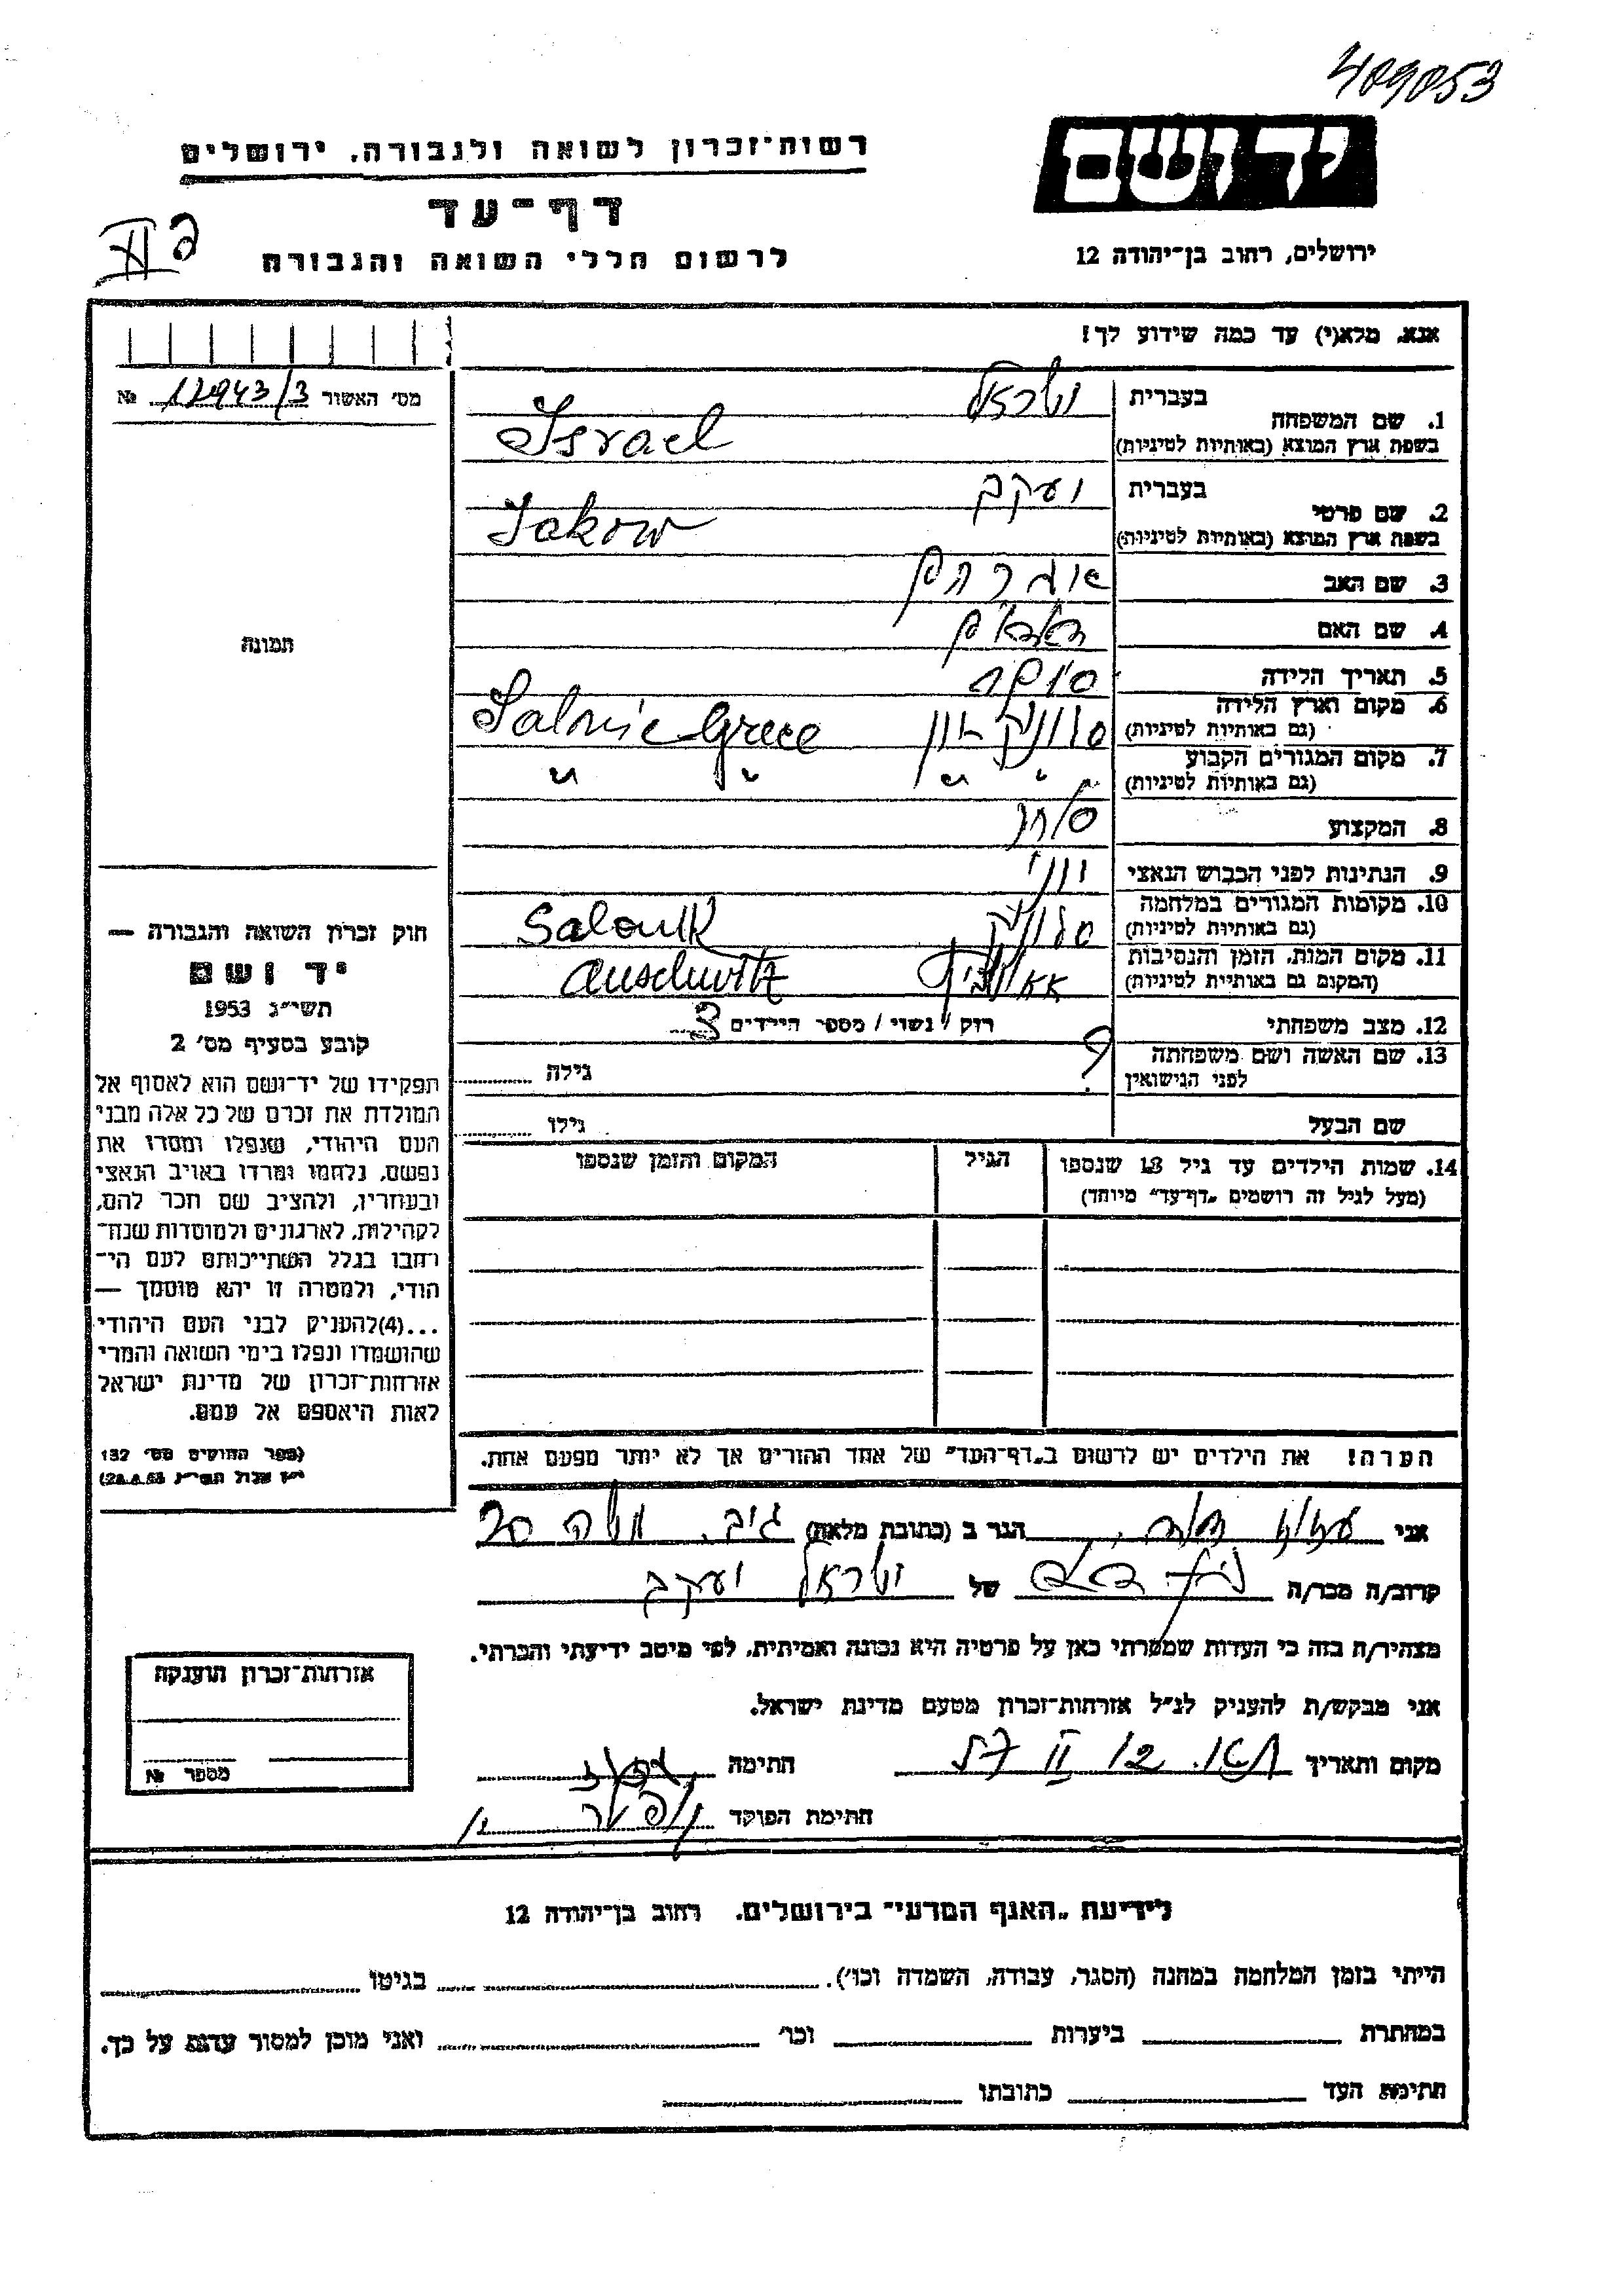 409053
יד ושם
ירושלים, רחוב בן־יהודה 12
רשות־זכרון לשואה ולגבורה, ירושלים
דף־עד
לרשום חללי השואה והגבורה
אנא, מלא(י) עד כמה שידוע לך!
מס׳ האשור 12943/3 №
1. שם המשפחה
בעברית ישראל
בשפת ארץ המוצא (באותיות לטיניות) Israel
2. שם פרטי
בעברית יעקב
בשפת ארץ המוצא (באותיות לטיניות) Jakow
3. שם האב אברהם
4. שם האם
5. תאריך הלידה
6. מקום וארץ הלידה
(גם באותיות לטיניות) סלוניקי יון Salonic Grece
7. מקום המגורים הקבוע
(גם באותיות לטיניות) " " " "
8. המקצוע סוחר
9. הנתינות לפני הכבוש הנאצי יווני
10. מקומות המגורים במלחמה
(גם באותיות לטיניות) סלוניקי Salonik
11. מקום המות, הזמן והנסיבות
(המקום גם באותיות לטיניות) אאושויץ Auschwitz
12. מצב משפחתי רווק / נשוי / מספר הילדים 3
13. שם האשה ושם משפחתה
לפני הנישואין ? גילה
שם הבעל גילו
14. שמות הילדים עד גיל 18 שנספו
(מעל לגיל זה רושמים „דף־עד״ מיוחד)
הגיל
המקום והזמן שנספו
הערה! את הילדים יש לרשום ב„דף־העד״ של אחד ההורים אך לא יותר מפעם אחת.
תמונה
חוק זכרון השואה והגבורה —
יד ושם
תשי״ג 1953
קובע בסעיף מס׳ 2
תפקידו של יד־ושם הוא לאסוף אל
המולדת את זכרם של כל אלה מבני
העם היהודי, שנפלו ומסרו את
נפשם, נלחמו ומרדו באויב הנאצי
ובעוזריו, ולהציב שם וזכר להם,
לקהילות, לארגונים ולמוסדות שנח־
רחבו בגלל השתייכותם לעם הי־
הודי, ולמטרה זו יהא מוסמך —
...(4)להעניק לבני העם היהודי
שהושמדו ונפלו בימי השואה והמרי
אזרחות־זכרון של מדינת ישראל
לאות היאספם אל עמם.
(ספר החוקים מס׳ 132
י״ז אלול תשי״ג 28.8.53)
אני הגר ב (כתובת מלאה) משה 20
קרוב/ה מכר/ה של ישראל יעקב
מצהיר/ה בזה כי העדות שמסרתי כאן על פרטיה היא נכונה ואמיתית, לפי מיטב ידיעתי והכרתי.
אני מבקש/ת להעניק לנ״ל אזרחות־זכרון מטעם מדינת ישראל.
מקום ותאריך חתימה
חתימת הפוקד
אזרחות־זכרון הוענקה
מספר №
לידיעת „האגף המדעי״ בירושלים, רחוב בן־יהודה 12
הייתי בזמן המלחמה במחנה (הסגר, עבודה, השמדה וכו׳). בגיטו
במחתרת ביערות וכו׳ ואני מוכן למסור עדות על כך.
חתימת העד כתובתו